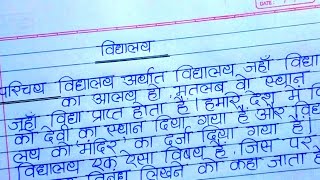 विद्यालय
परिचय विद्यालय अर्थात विद्यालय, जहाँ विद्या
का आलय हो, मतलब वो स्थान
जहाँ विद्या प्राप्त होता है। हमारे देश में
को देवी का स्थान दिया गया है और
लय को 'मंदिर' का दर्जा दिया गया है।
विद्यालय एक ऐसा विषय है, जिस पर
निबंध लिखने को कहा जाता है